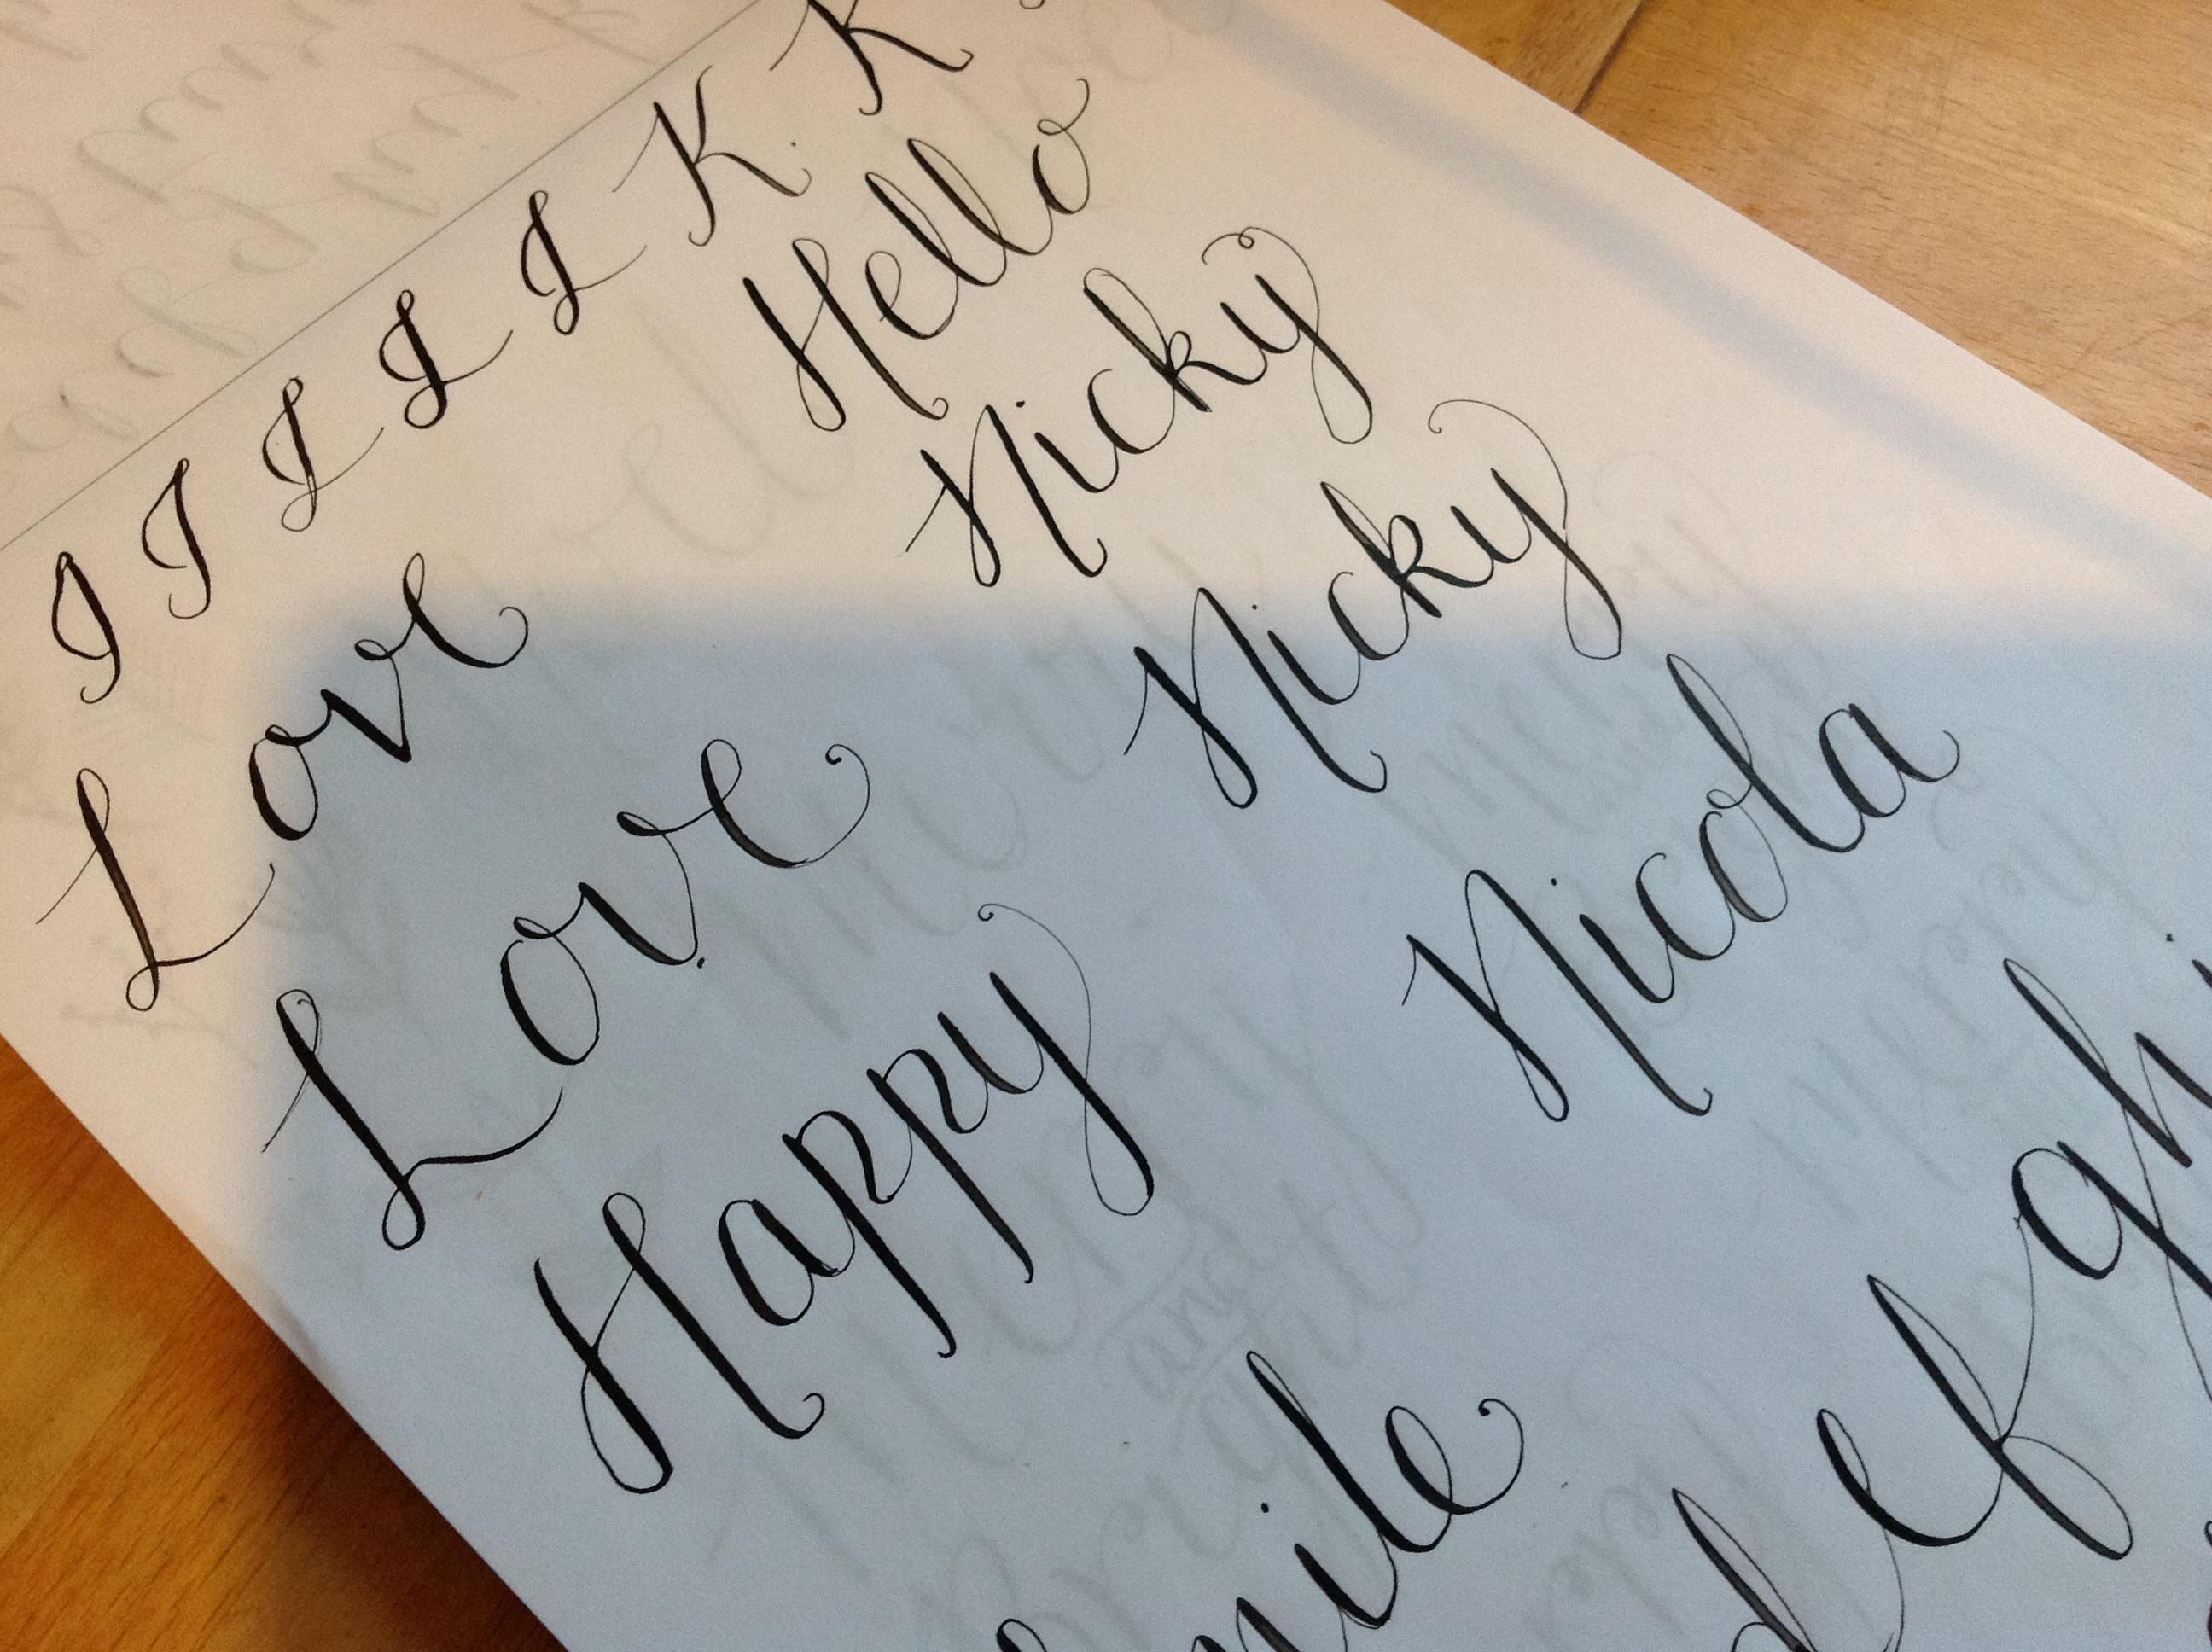 I I L L L K. K
Love Hello
Love Nicky
Happy Nicky
mile Nicola
d e f g h i